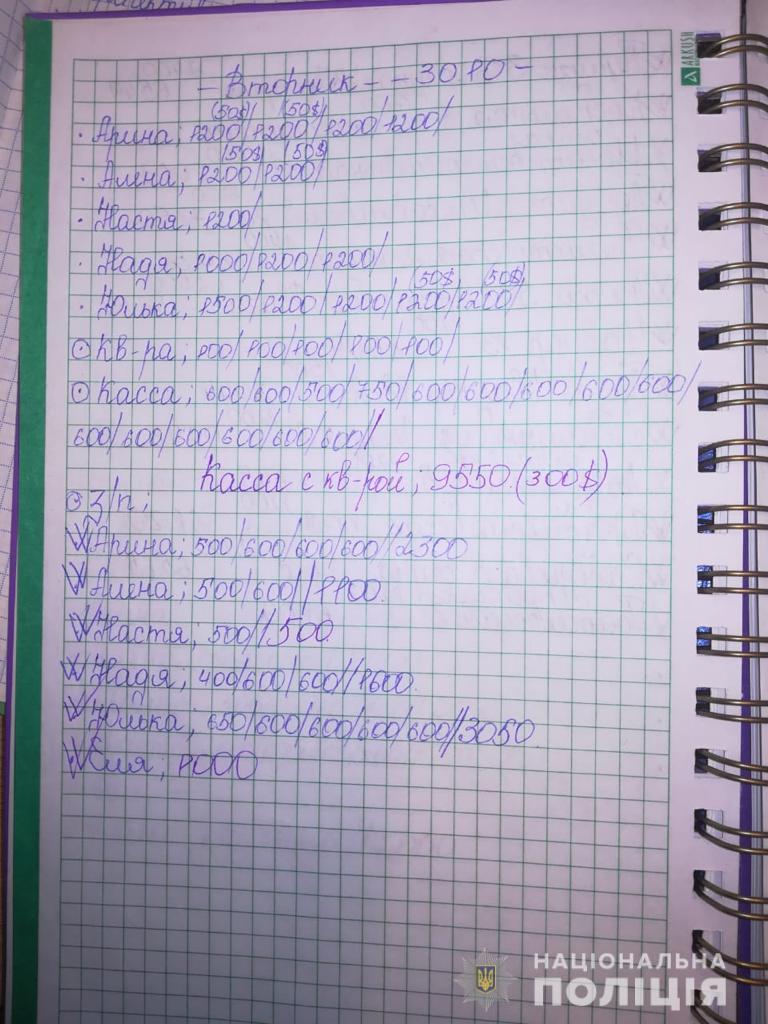 - Вторник - - 30 10 -
(50$) (50$)
· Арина; 1200/1200/1200/1200/
(50$) (50$)
· Алена; 1200/1200/
· Настя; 1200/
· Надя; 1000/1200/1200/
(50$) (50$)
· Юлька; 1500/1200/1200/1200/1200/
⊙ КВ-ра; 100/100/100/100/100/
⊙ Касса; 600/600/500/750/600/600/600/600/600/
600/600/600/600/600/600//
Касса с кв-рой; 9550.(300$)
⊙ З/п;
Арина; 500/600/600/600//2300
Алена; 500/600//1100.
Настя; 500//500.
Надя; 400/600/600//1600.
Юлька; 650/600/600/600/600//3050.
Еля; 1000
ARKUSH
НАЦІОНАЛЬНА
ПОЛІЦІЯ